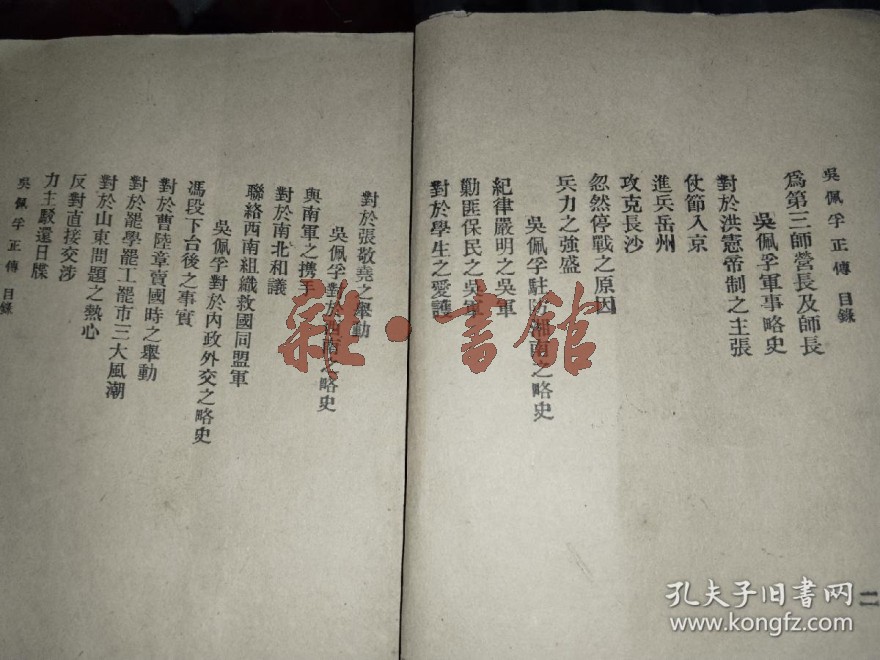 吳佩孚正傳 目錄
二
爲第三師營長及師長
吳佩孚軍事略史
對於洪憲帝制之主張
仗節入京
進兵岳州
攻克長沙
忽然停戰之原因
兵力之強盛
吳佩孚駐防湘南之略史
紀律嚴明之吳軍
勦匪保民之吳軍
對於學生之愛護
對於張敬堯之舉動
吳佩孚對於西南之略史
與南軍之携手
對於南北和議
聯絡西南組織救國同盟軍
吳佩孚對於內政外交之略史
馮段下台後之事實
對於曹陸章賣國時之舉動
對於罷學罷工罷市三大風潮
對於山東問題之熱心
反對直接交涉
力主駁還日牒
吳佩孚正傳 目錄
雜·書館
孔夫子旧书网
www.kongfz.com